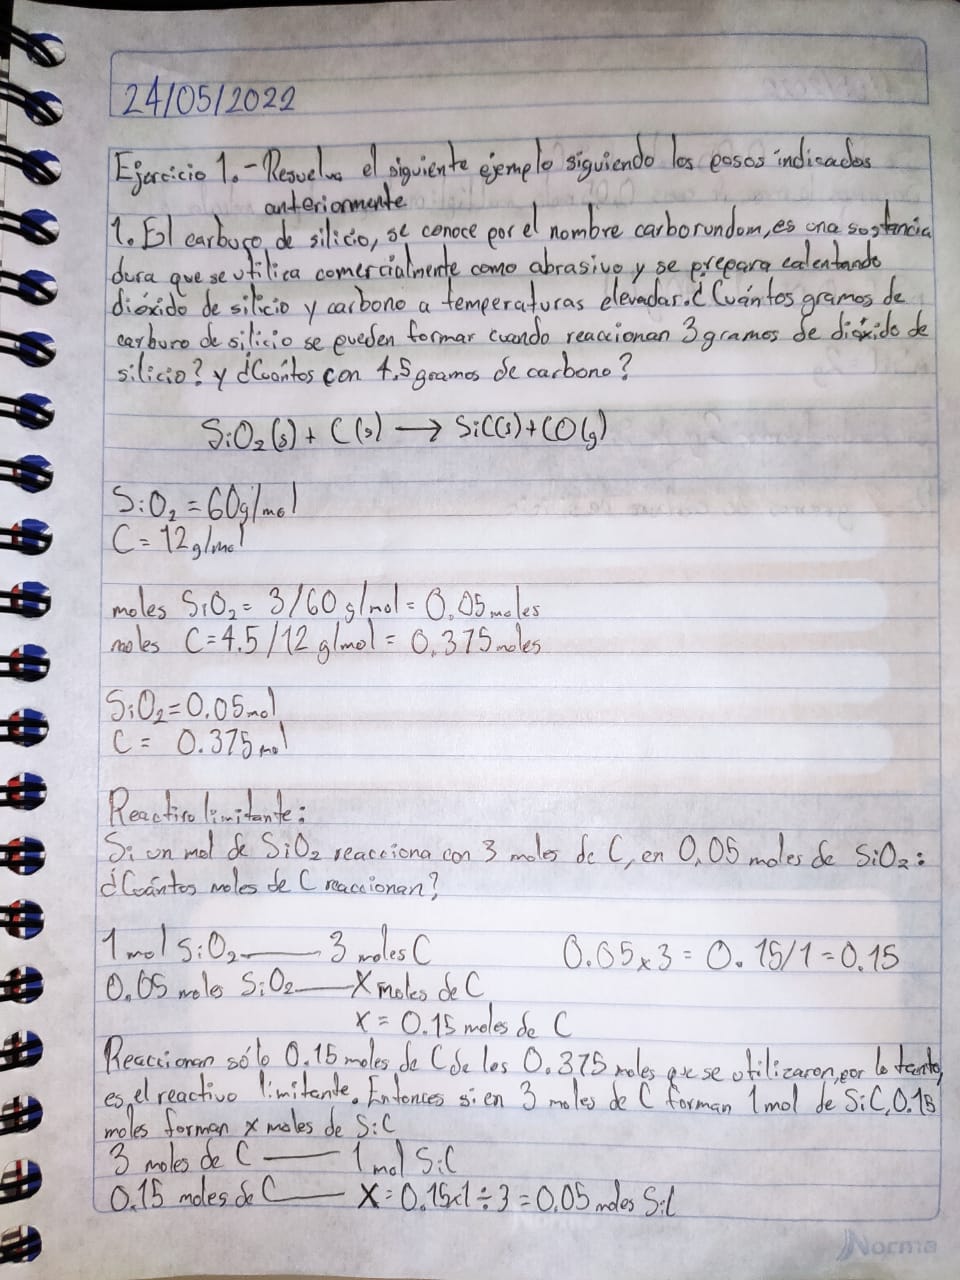 24/05/2022
Ejercicio 1.- Resuelva el siguiente ejemplo siguiendo los pasos indicados
anteriormente
1. El carburo de silicio, se conoce por el nombre carborundom, es una sostancia
dura que se utilica comercialmente como abrasivo y se prepara calentando
dióxido de silicio y carbono a temperaturas elevadar. ¿Cuántos gramos de
carburo de silicio se pueden formar cuando reaccionan 3 gramos de dióxido de
silicio? y ¿Cuántos con 4,5 gramos de carbono?
SiO₂(s) + C(s) → SiC(s) + CO(g)
SiO₂ = 60g/mol
C = 12g/mol
moles SiO₂ = 3/60 g/mol = 0,05 moles
moles C = 4.5/12 g/mol = 0,375 moles
SiO₂ = 0.05 mol
C = 0.375 mol
Reactivo limitante:
Si un mol de SiO₂ reacciona con 3 moles de C, en 0,05 moles de SiO₂:
¿Cuántos moles de C reaccionan?
1 mol SiO₂ —— 3 moles C 0.05 x 3 = 0.15/1 = 0.15
0,05 moles SiO₂ —— X moles de C
x = 0.15 moles de C
Reaccionan sólo 0.15 moles de C de los 0.375 moles que se utilizaron, por lo tanto,
es el reactivo limitante. Entonces si en 3 moles de C forman 1 mol de SiC, 0.15
moles forman x moles de SiC
3 moles de C —— 1 mol SiC
0.15 moles de C —— X = 0.15x1 ÷ 3 = 0.05 moles SiC
Norma